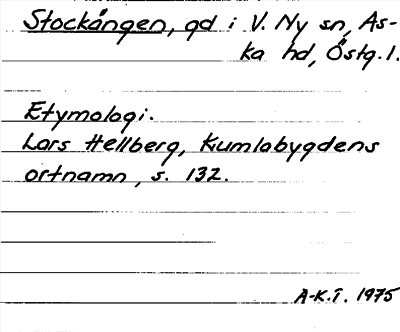 Stockången, gd i V. Ny sn, As-
ka hd, Östg.l.
Etymologi.
Lars Hellberg, Kumlabygdens
ortnamn, s. 132.
A-K.T. 1975